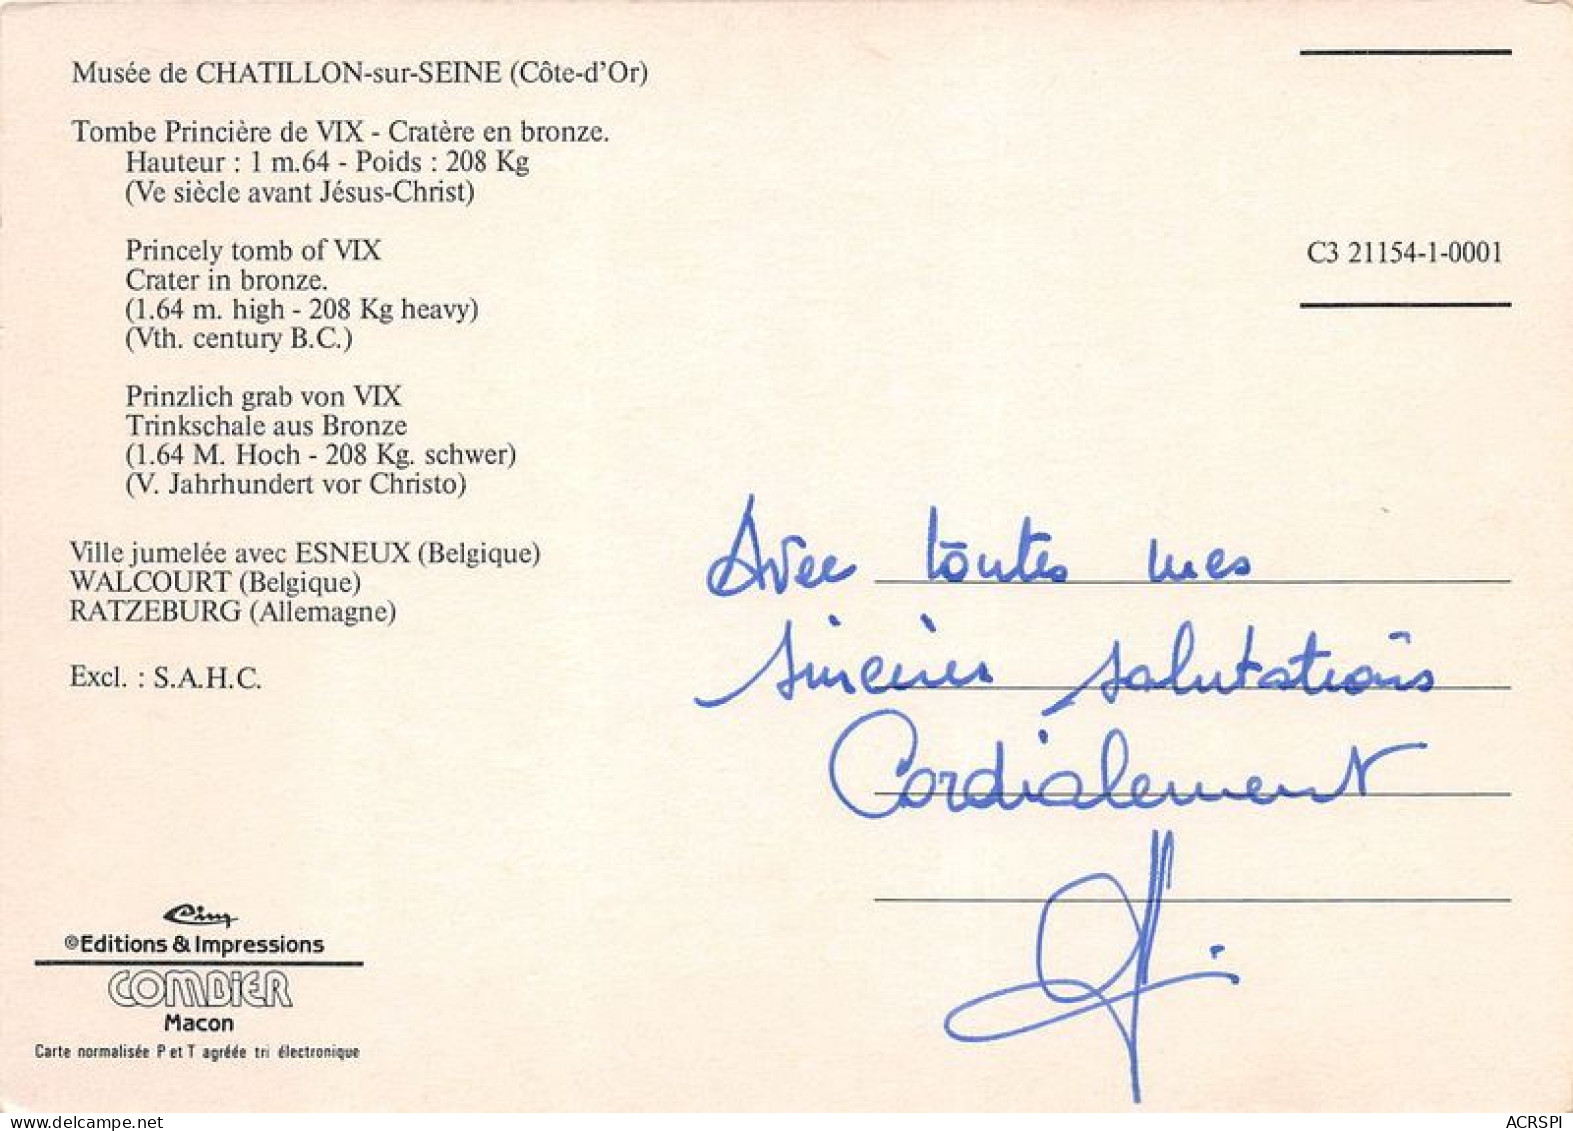 Musée de CHATILLON-sur-SEINE (Côte-d'Or)
Tombe Princière de VIX - Cratère en bronze.
Hauteur : 1 m.64 - Poids : 208 Kg
(Ve siècle avant Jésus-Christ)
Princely tomb of VIX
Crater in bronze.
(1.64 m. high - 208 Kg heavy)
(Vth. century B.C.)
Prinzlich grab von VIX
Trinkschale aus Bronze
(1.64 M. Hoch - 208 Kg. schwer)
(V. Jahrhundert vor Christo)
Ville jumelée avec ESNEUX (Belgique)
WALCOURT (Belgique)
RATZEBURG (Allemagne)
Excl. : S.A.H.C.
Cim
©Editions & Impressions
COMBIER
Macon
Carte normalisée P et T agréée tri électronique
C3 21154-1-0001
Avec toutes mes
sincères salutations
Cordialement
delcampe.net
ACRSPI